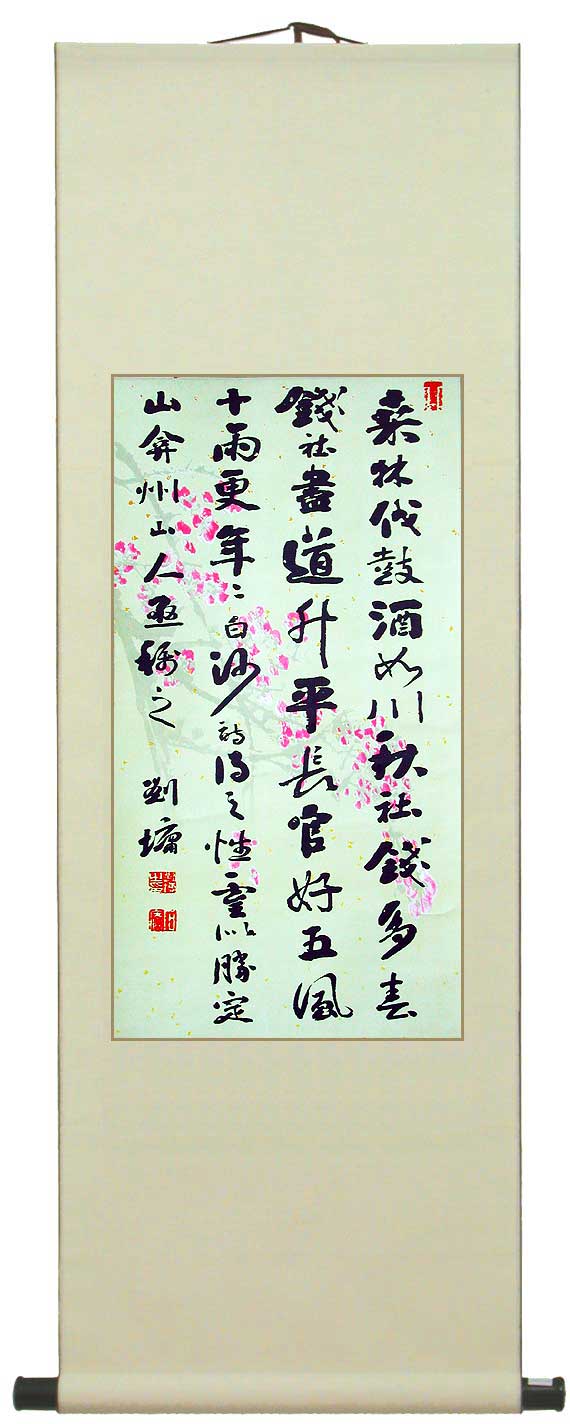 桑林伐鼓酒如川秋社錢多春
錢社盡道升平長官好五風
十雨更年〻白沙詩得之性靈似勝定
山弇州山人亟稱之
劉墉